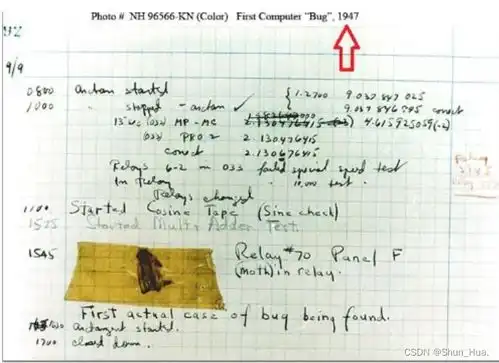 Photo # NH 96566-KN (Color) First Computer "Bug", 1947
92
9/9
0800 antan started
1000 " stopped - antan ✓ { 1.2700 9.037 847 025
9.037 846 995 conect
13"uc (032) MP - MC 2.130476415 4.615925059(-2)
(033) PRO 2 2.130476415
conect 2.130676415
Relays 6-2 in 033 failed special speed test
In Relay " 10,000 test.
Relays changed
1100 Started Cosine Tape (Sine check)
1525 Started Multi Adder Test.
1545 Relay #70 Panel F
(Moth) in relay.
First actual case of bug being found.
1630 antangent started.
1700 closed down.
CSDN @Shun_Hua.